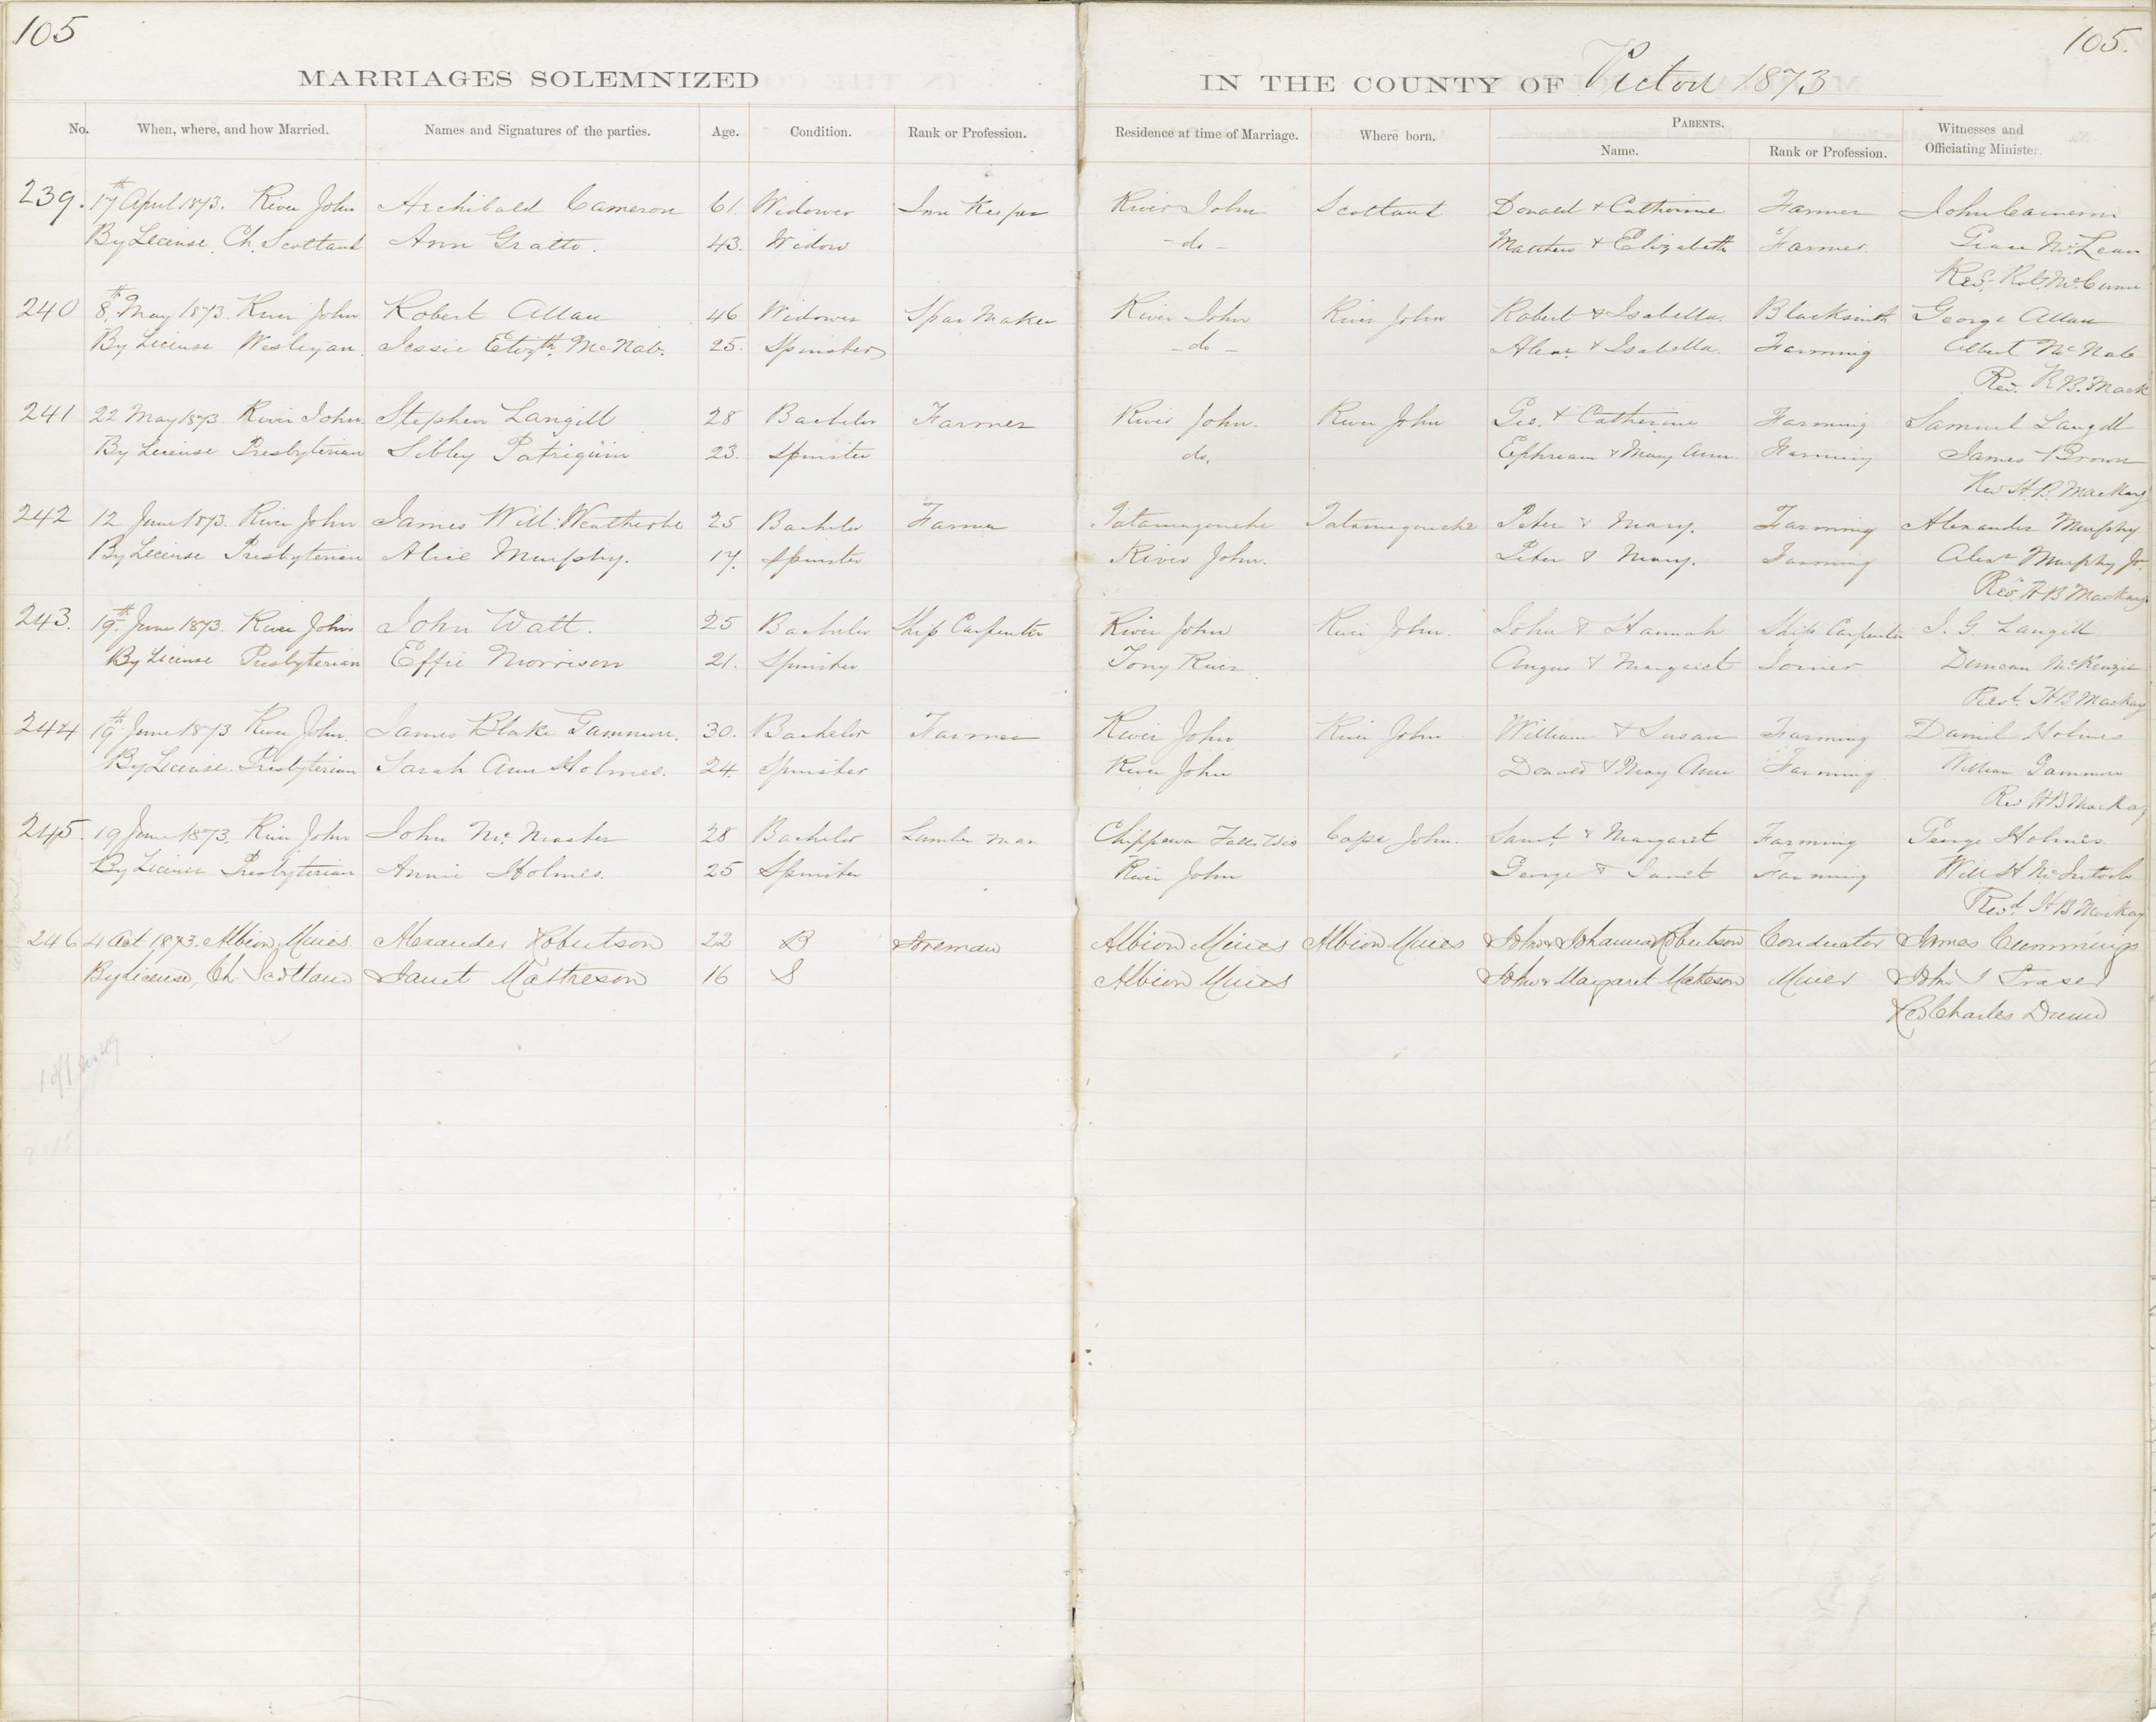 105
105.
MARRIAGES SOLEMNIZED IN THE COUNTY OF Pictou 1873
No. When, where, and how Married. Names and Signatures of the parties. Age. Condition. Rank or Profession. Residence at time of Marriage. Where born. PARENTS. Name. Rank or Profession. Witnesses and Officiating Minister.
239. 17th April 1873. River John Archibald Cameron 61. Widower Inn Keeper River John Scotland Donald & Catherine Farmer John Cameron
By License. Ch. Scotland Ann Gratto. 43. Widow - do - Matthew & Elizabeth Farmer. Grace McLean
Revd. Robt. McCunn
240 8th May 1873. River John Robert Allan 46 Widower Spar Maker River John River John Robert & Isabella. Blacksmith George Allan
By License Wesleyan. Jessie Elizth. McNab. 25. Spinster - do - Alexr. & Isabella. Farming Albert McNab
Rev. R. B. Mack
241 22 May 1873. River John. Stephen Langill 28 Bachelor Farmer River John. River John Geo. & Catherine Farming Samuel Langill
By License Presbyterian Sibley Patriquin 23. Spinster do. Ephream & Mary Ann. Farming James Brown
Rev H. B. MacKay
242 12 June 1873. River John James Will: Weatherbe 25 Bachelor Farmer Tatamagouche Tatamagouche Peter & Mary. Farming Alexander Murphy
By License Presbyterian Alice Murphy. 17. Spinster River John. Peter & Mary. Farming Alexr Murphy Jr.
Rev. H B MacKay
243. 19th June 1873. River John John Watt. 25 Bachelor Ship Carpenter River John River John. John & Hannah Ship Carpenter J. G. Langill
By License Presbyterian Effie Morrison 21. Spinster Tony River. Angus & Margaret Joiner Duncan McKenzie
Revd. H B MacKay
244 19th June 1873 River John. James Blake Gammon. 30. Bachelor Farmer River John River John William & Susan Farming Daniel Holmes
By License. Presbyterian Sarah Ann Holmes. 24. Spinster River John Donald & Mary Ann Farming William Gammon
Rev H B MacKay
245. 19 June 1873. River John John McMaster 28 Bachelor Lumber Man Chippewa Falls Cape John. Saml. & Margaret Farming George Holmes.
By License Presbyterian Annie Holmes. 25 Spinster River John George & Janet Farming Will H McIntosh
Revd. H B MacKay
246 4 Oct 1873. Albion Mines Alexander Robertson 22 B Foreman Albion Mines Albion Mines John & Johanna Robertson Conductor James Cummings
By License, Ch Scotland Janet Matheson 16 S Albion Mines John & Margaret Matheson Miner John J Fraser
Rev Charles Dunn